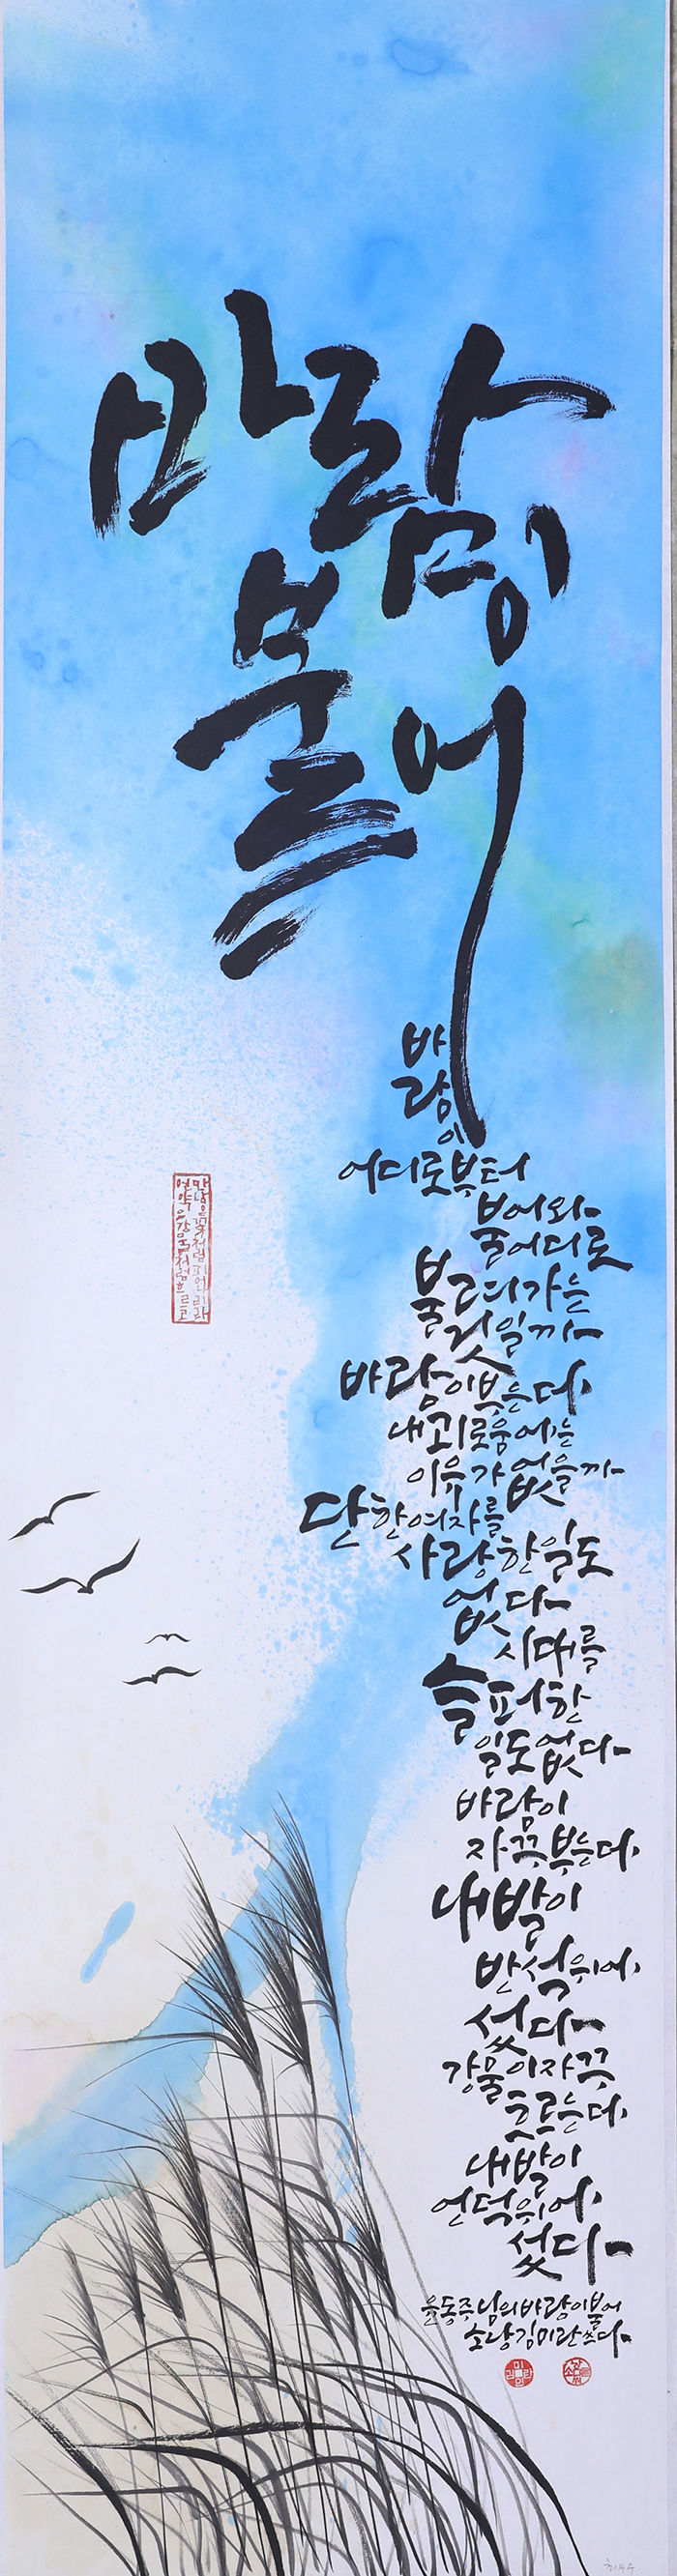 바람이
불어
바
람
이
어디로부터
불어와
불어디로
불려가는
것일까
바람이부는데,
내괴로움에는
이유가없을까
단한여자를
사랑한일도
없다
시대를
슬퍼한
일도없다
바람이
자꾸부는데,
내발이
반석위에,
섰다
강물이자꾸
흐르는데,
내발이
언덕위에,
섰다
윤동주님의바람이불어
소낭김미란쓰다
만남은꽃처럼피어나리라